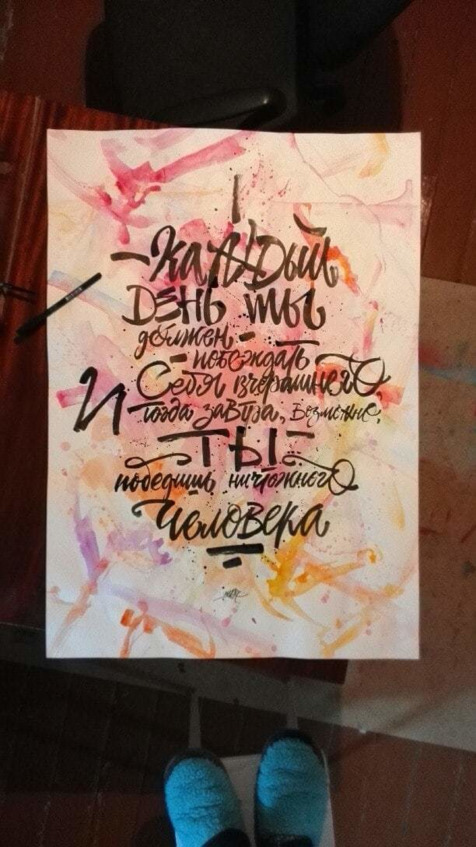 Каждый
День ты
должен
побеждать
Себя вчерашнего,
И тогда завтра, возможно,
ТЫ
победишь ничтожного
Человека